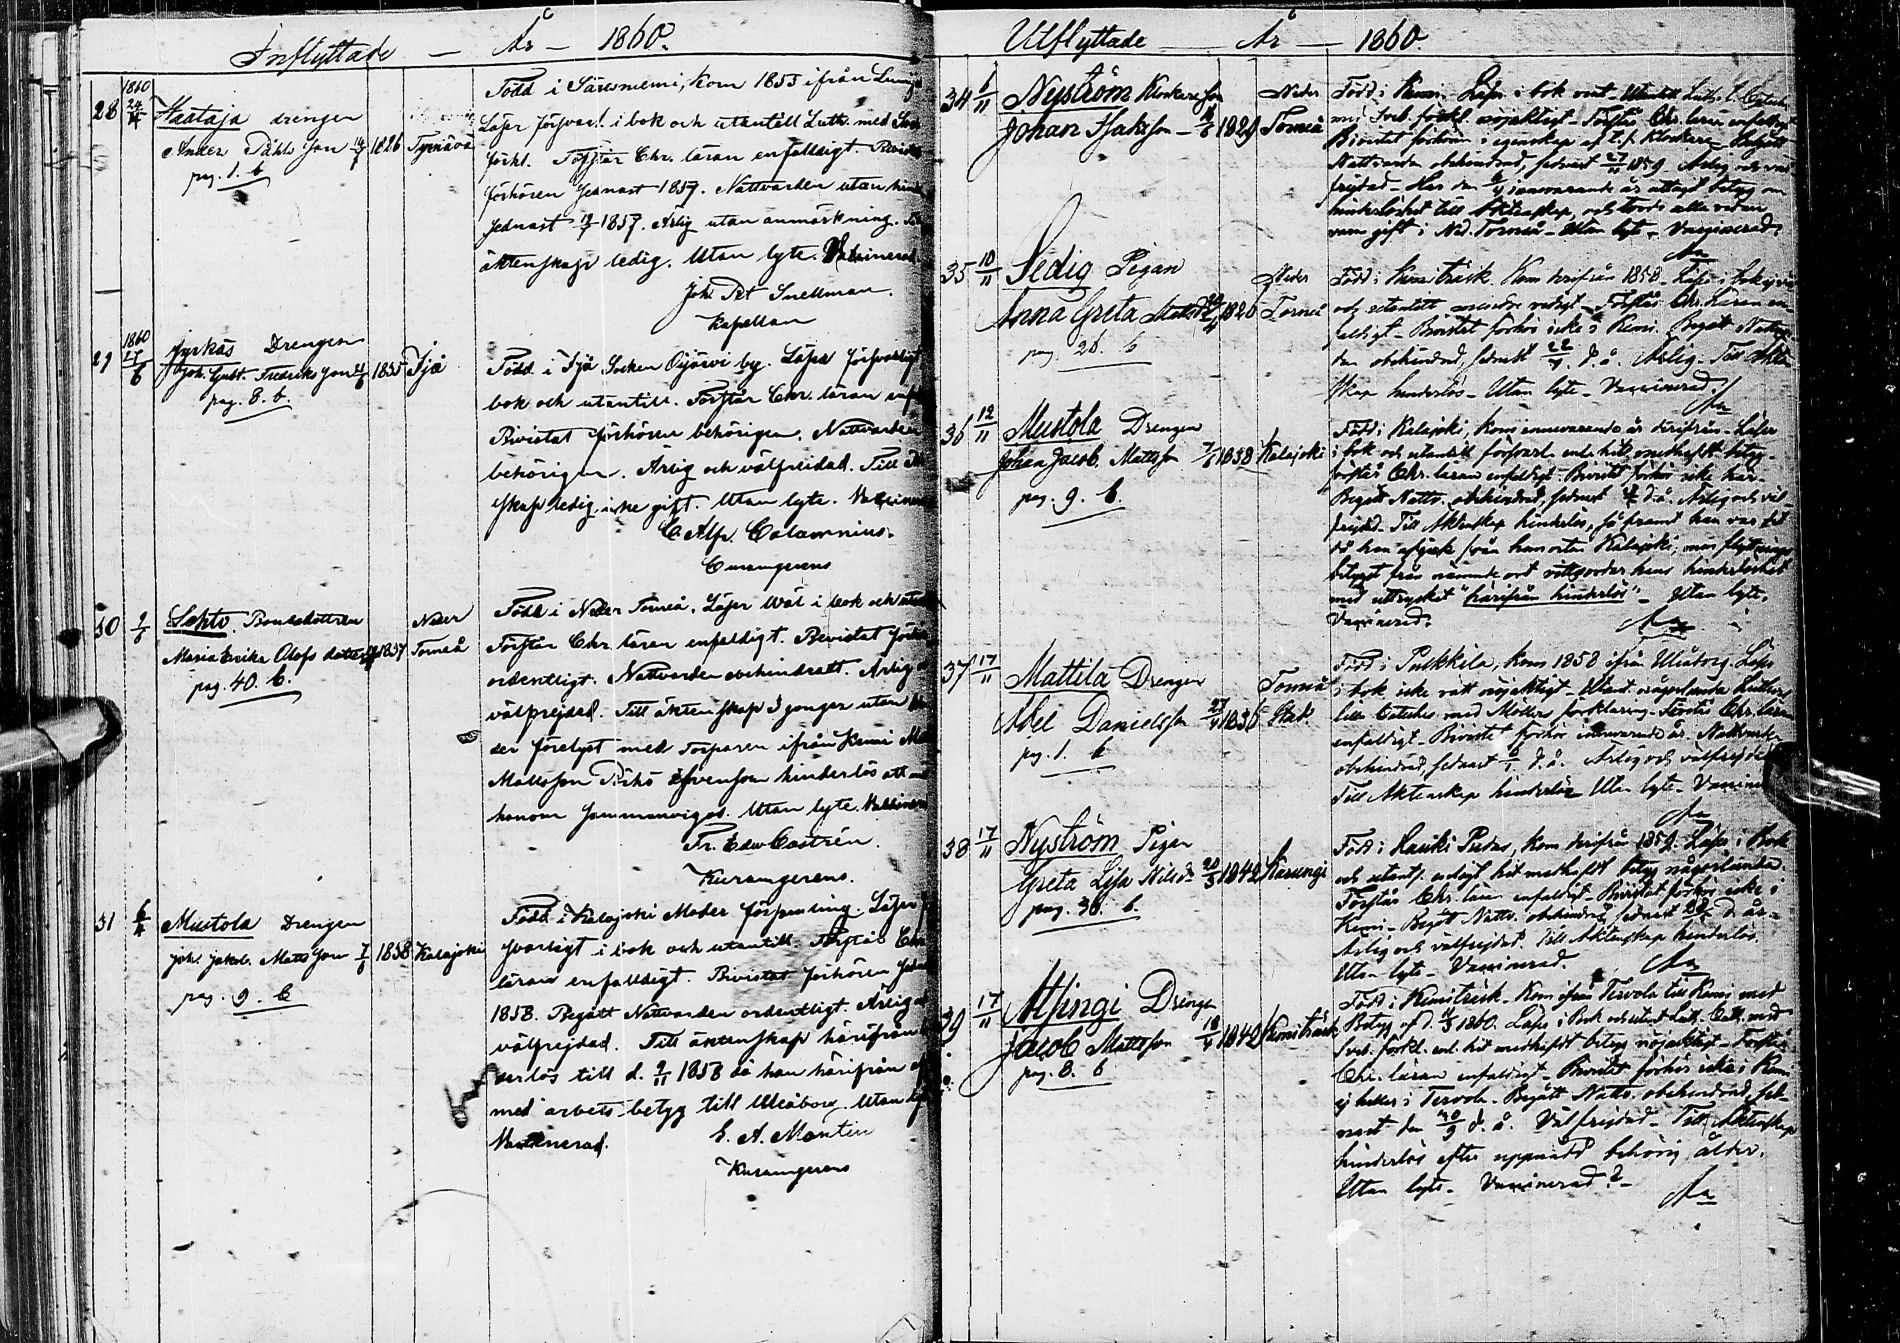 Inflyttade — År — 1860.
28 1860 24/4 Haataja drengen
Anders Påhls Son 1826 Tyrnävä
pag. 1. b
Född i Säresniemi, kom 1855 ifrån
Läser försvarl. i bok och utantill Luth. med
förkl. Förstår Chr. läran enfaldigt. Bevistat
förhören sednast 1859. Nattvarden utan
sednast 1859. Ärlig utan anmärkning.
äktenskap ledig. Utan lyte. Vakcinerad
Joh. Pet Snellman.
Kapellan
29 1860 17/6 Jyrkäs Drengen
Joh. Gust. Fredriks Son 1835 Ijå
pag. 8. b.
Född i Ijå Socken Oijärvi by. Läser försvarligt
bok och utantill. Förstår Chr. läran
Bevistat förhören behörigen. Nattvarden
behörigen. Ärlig och välfrejdad. Till
skap ledig, icke gift. Utan lyte.
C. Alfr. Calamnius.
Curamgerens
30 2/6 Lehto. Bondedottren
Maria Erika Olofs dotter 1837 Neder Torneå
pag. 40. b.
Född i Neder Torneå. Läser wäl i bok och
Förstår Chr. läran enfaldigt. Bevistat
ordentligt. Nattvarden obehindradt. Ärlig
välfrejdad. Till äktenskap 3 gånger utan
der förelyst med Torparen ifrån Kemi
Mattsson äfvensom hinderlös att
honom sammanvigas. Utan lyte.
Fr. Edw Castrén.
Kuramgerens.
31 6/6 Mustola Drengen
Joh. Jakob Matts Son 7/6 1838 Kalajoki
pag. 9. b
Född i Kalajoki Moder församling. Läser
svarligt i bok och utantill. Förstår Chr
läran enfaldigt. Bevistat förhören
1858. Begått Nattvarden ordentligt. Ärlig
välfrejdad. Till äktenskap härifrån
derlös till d. 9/11 1858 då han härifrån
med arbets betyg till Uleåborg. Utan
Vakcinerad. E. A. Montin
Kuramgerens
Utflyttade — År — 1860.
34 1/11 Nyström Klockare Son
Johan Isaksson — 1829 Neder Torneå
Född i Kemi. Läser i bok
med Sveb. förkl. nöjaktigt — Förstår Chr. läran enfaldigt
Bevistat förhören i egenskap af t. f. Klockare — Begått
Nattvarden obehindrad, sednast 27/11 1859
frejdad — Har den innevarande år uttagit betyg om
hinderlöshet till äktenskap, och torde alla redan
vara gift i Ned. Torneå — Utan lyte — Vaccinerad.
35 10/11 Sedig Pigan
Anna Greta Matsd. 1826 Neder Torneå
pag. 28. b
Född i Kemiträsk. Kom derifrån 1858 — Läser i bok
och utantill mindre redigt — Förstår Chr. läran en-
faldigt — Bevistat förhör icke i Kemi. Begått
den obehindrad, sednast d. å. Ärlig — Till
skap hinderlös — Utan lyte — Vaccinerad.
36 12/11 Mustola Drengen
Johan Jacob Mattsson 7/6 1838 Kalajoki
pag. 9. b.
Född i Kalajoki, kom innevarande år derifrån — Läser
i bok och utantill försvarl. enl. hit medhaft betyg —
förstår Chr. läran enfaldigt — Bevistat förhör icke här —
Begått Nattv. obehindrad, sednast d. å. Ärlig och väl
frejdad — Till Äktenskap hinderlös, så framt han var det
då han afgick från hemorten Kalajoki, men flyttnings
betyget från nämnde ort vittsordar hans hinderlöshet
med uttrycket "härifrån hinderlös" — Utan lyte.
Vaccinerad.
37 17/11 Mattila Drengen
Abel Danielsson 1836 Torneå Stad.
pag. 1. b
Född i Pulkkila, kom 1858 ifrån Uleåborg. Läser
i bok icke rätt nöjaktigt — Utant. någorlunda Lutheri
lilla Cateches med Möllers förklaring — Förstår Chr. läran
enfaldigt — Bevistat förhör innevarande år — Nattvarden
obehindrad, sednast d. å. Ärlig och välfrejdad
Till Äktenskap hinderlös Utan lyte —
38 17/11 Nyström Pigan
Greta Lisa Nilsd. 1842 Karungi
pag. 38. b.
Född i Kom derifrån 1859. Läser i Bok
och utant. enligt hit medhaft betyg någorlunda.
Förstår Chr. läran enfaldigt — Bevistat förhör icke i
Kemi — Begått Nattv. obehindrad sednast d. år —
Ärlig och välfrejdad. Till Äktenskap hinderlös.
Utan lyte — Vaccinerad.
39 17/11 Alpingi Drengen
Jacob Mattsson 1842 Kemiträsk
pag. 8. b
Född i Kemiträsk — Kom ifrån Tervola till Kemi med
Betyg af d. 1860. Läser i Bok och utant. Luth. Cath. med
Sveb. förkl. enl. hit medhaft betyg nöjaktigt — Förstår
Chr. läran enfaldigt — Bevistat förhör icke i Kemi
ej heller i Tervola — Begått Nattv. obehindrad, sed-
nast den 30/9 d. å. Välfrejdad — Till Äktenskap
hinderlös efter uppnådd behörig ålder.
Utan lyte — Vaccinerad? —